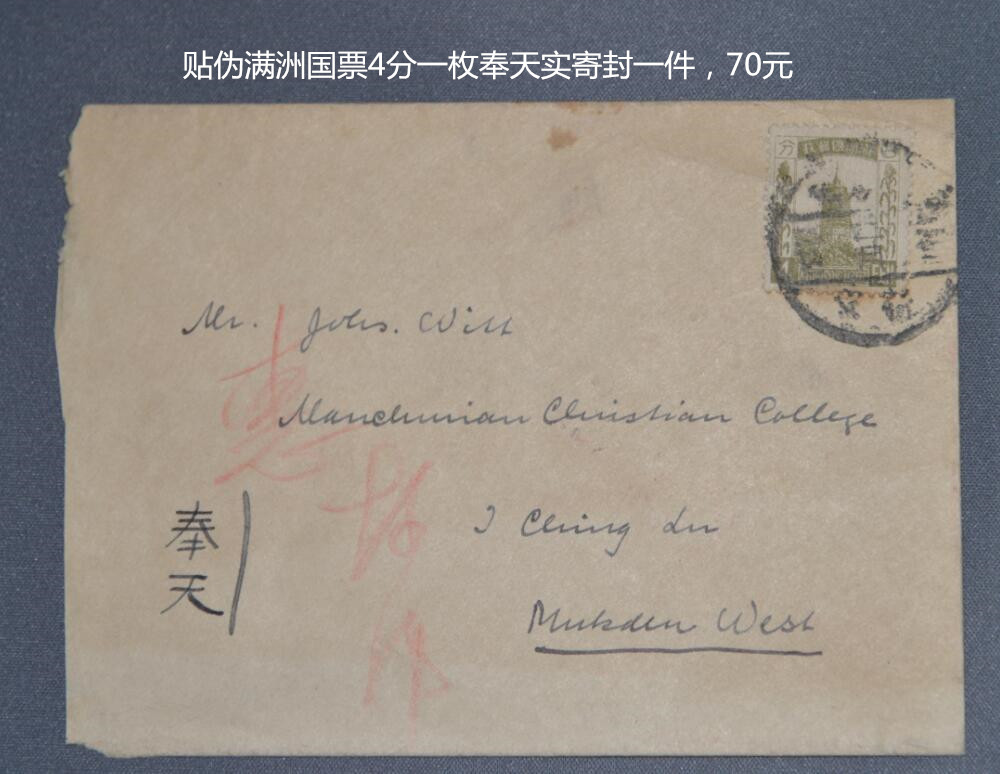 贴伪满洲国票4分一枚奉天实寄封一件，70元
分
Mr. Johs. Witt
Manchurian Christian College
I Ching Lu
Mukden West
奉天
惠